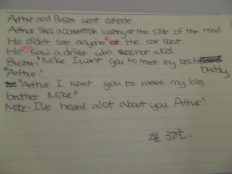 Arthur and Buster went outside
Arthur saw a convertible waiting at the side of the road
He didn't see anyone at the car seat.
He saw a driver who was not a kid
Buster: "Mike I want you to meet my best buddy
"Arthur."
"Arthur I want you to meet my big
brother Mike"
Mike: I've heard a lot about you Arthur"